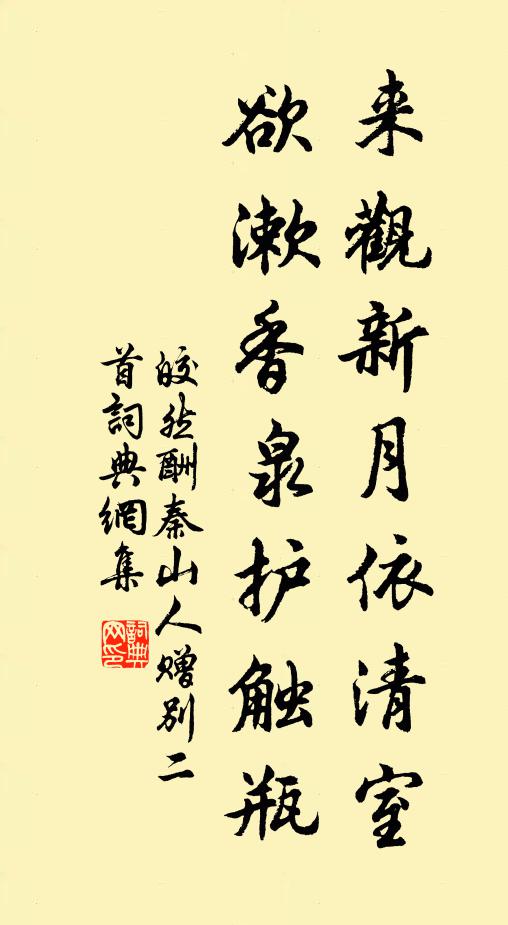 来觀新月依清室
欲漱香泉护触瓶
皎然酬秦山人赠别二
首詞典網集
詞典
网印